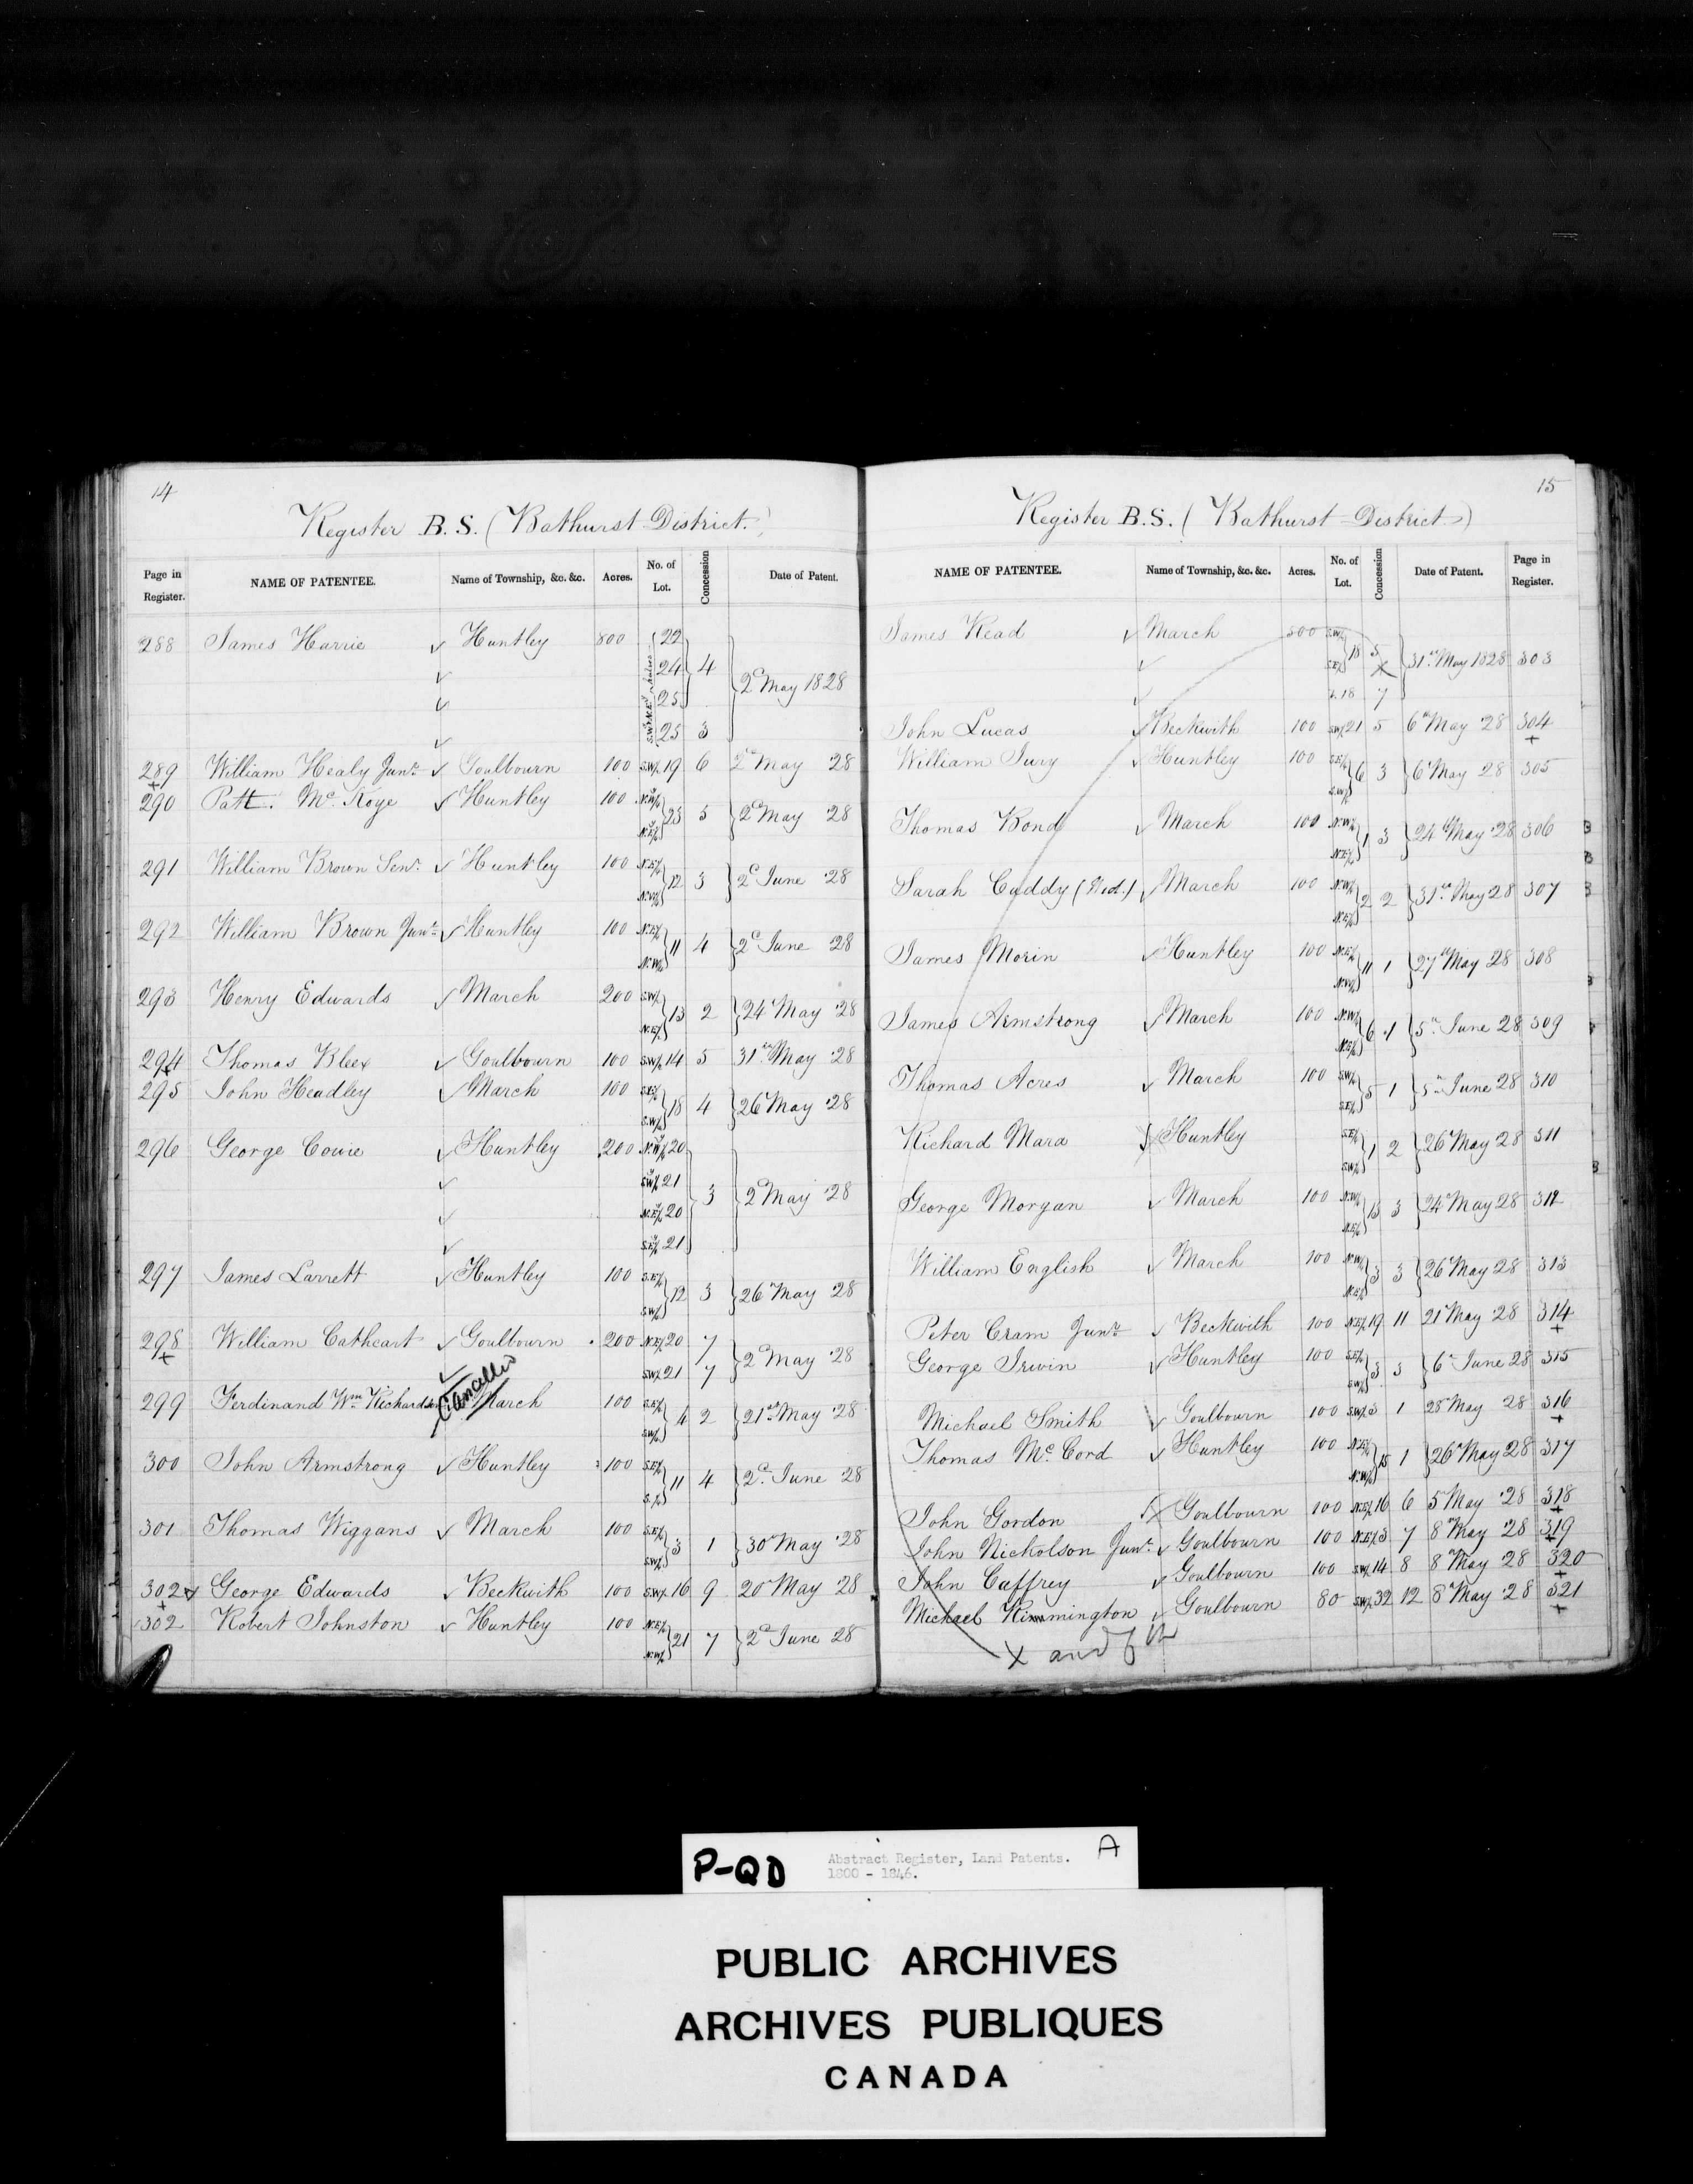 14
Register B.S. (Bathurst District.)
Page in Register. NAME OF PATENTEE. Name of Township, &c. &c. Acres. No. of Lot. Concession Date of Patent.
288 James Harrie Huntley 800 22
24 4
25 2d May 1828
25 3
289 William Healy Junr. Goulbourn 100 S.W½ 19 6 2d May '28
290 Patt. Mc. Koye Huntley 100 N.W¼ 23 5 2d May '28
N.E¼
291 William Brown Senr. Huntley 100 N.E¼ 12 3 2d June '28
N.W¼
292 William Brown Junr. Huntley 100 N.E¼ 11 4 2d June '28
N.W¼
293 Henry Edwards March 200 S.W½ 13 2 24th May '28
N.E½
294 Thomas Bleex Goulbourn 100 S.W½ 14 5 31st May '28
295 John Headley March 100 S.E¼ 18 4 26th May '28
S.W¼
296 George Cowie Huntley 200 N.W¼ 20
S.W¼ 21 3 2d May '28
N.E¼ 20
S.E¼ 21
297 James Larrett Huntley 100 S.E¼ 12 3 26th May '28
S.W¼
298 William Cathcart Goulbourn 200 N.E½ 20 7 2d May '28
S.W½ 21 7
Cancelled
299 Ferdinand Wm. Richardson March 100 S.E¼ 4 2 21st May '28
S.W¼
300 John Armstrong Huntley 100 S.E¼ 11 4 2d June '28
301 Thomas Wiggans March 100 S.E¼ 3 1 30th May '28
S.W¼
302 George Edwards Beckwith 100 S.W½ 16 9 20th May '28
302 Robert Johnston Huntley 100 N.E¼ 21 7 2d June '28
N.W¼
15
Register B.S. (Bathurst District)
NAME OF PATENTEE. Name of Township, &c. &c. Acres. No. of Lot. Concession Date of Patent. Page in Register.
James Read March 300 S.W¼ 18 3 31st May 1828 303
S.E¼ X
18 7
John Lucas Beckwith 100 S.W½ 21 5 6th May '28 304
William Jury Huntley 100 S.E¼ 6 3 6th May 28 305
S.W¼
Thomas Bond March 100 N.W¼ 1 3 24th May '28 306
N.E¼
Sarah Cuddy (Wid.) March 100 N.W¼ 2 2 31st May 28 307
N.E¼
James Morin Huntley 100 N.E¼ 11 1 27th May 28 308
N.W¼
James Armstrong March 100 N.W¼ 6 1 5th June 28 309
N.E¼
Thomas Acres March 100 S.W¼ 5 1 5th June 28 310
S.E¼
Richard Mara Huntley S.E¼ 1 2 26th May 28 311
S.W¼
George Morgan March 100 N.W¼ 13 3 24th May 28 312
N.E¼
William English March 100 N.W¼ 3 3 26th May 28 313
N.E¼
Peter Cram Junr. Beckwith 100 N.E½ 19 11 21st May '28 314
George Irwin Huntley 100 S.E¼ 3 3 6th June 28 315
S.W¼
Michael Smith Goulbourn 100 S.W½ 3 1 28th May 28 316
Thomas Mc. Cord Huntley 100 N.E¼ 15 1 26th May 28 317
N.W¼
John Gordon Goulbourn 100 N.E½ 16 6 5th May '28 318
John Nicholson Junr. Goulbourn 100 N.E½ 3 7 8th May '28 319
John Caffrey Goulbourn 100 S.W½ 14 8 8th May '28 320
Michael Kimmington Goulbourn 80 S.W½ 32 12 8th May '28 321
X and 6th
P-QD
Abstract Register, Land Patents.
1800 - 1846.
A
PUBLIC ARCHIVES
ARCHIVES PUBLIQUES
CANADA